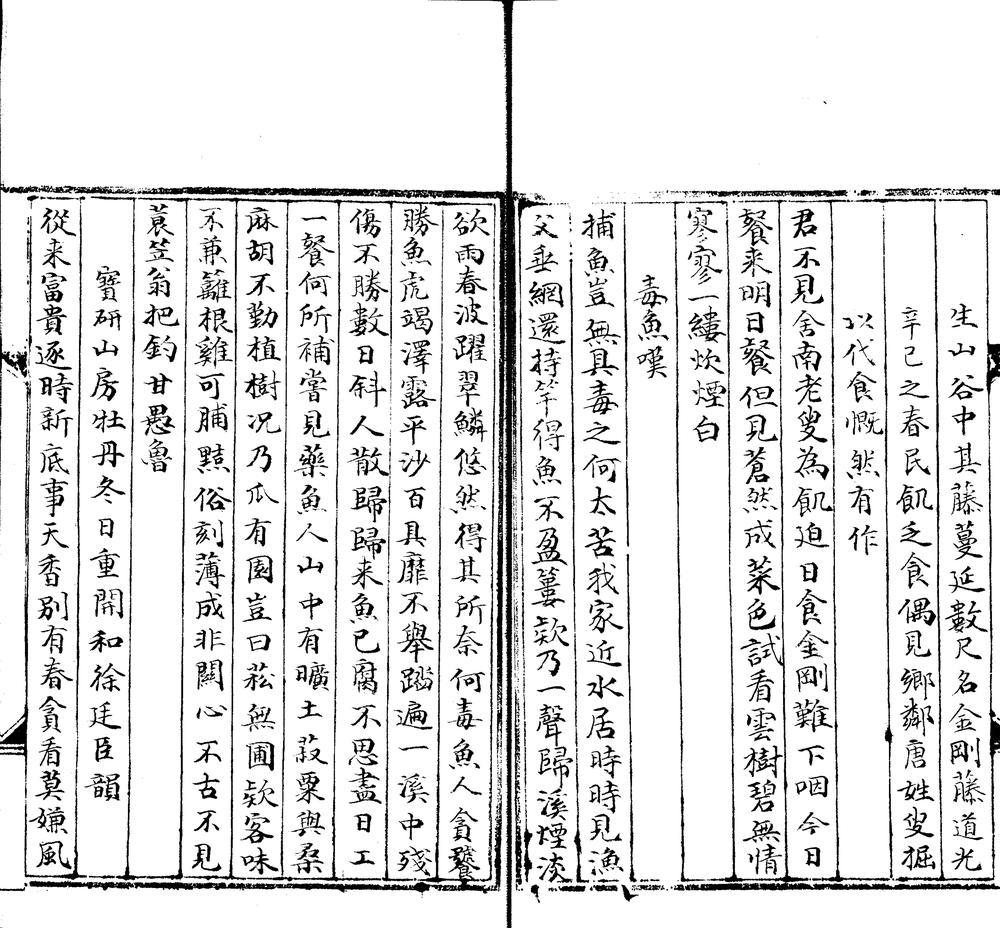 生山谷中其藤蔓延數尺名金剛藤道光
辛巳之春民飢乏食偶見鄉鄰唐姓叟掘
以代食慨然有作
君不見舍南老叟為飢迫日食金剛難下咽今日
餐來明日餐但見蒼然成菜色試看雲樹碧無情
寥寥一縷炊煙白
毒魚嘆
捕魚豈無具毒之何太苦我家近水居時時見漁
父垂網還持竿得魚不盈簍欵乃一聲歸溪煙淡
欲雨春波躍翠鱗悠然得其所奈何毒魚人貪饕
勝魚虎竭澤露平沙百具靡不舉踏遍一溪中殘
傷不勝數日斜人散歸歸来魚已腐不思盡日工
一餐何所補嘗見藥魚人山中有曠土菽粟與桑
麻胡不勤植樹况乃瓜有園豈曰菘無圃欵客味
不兼籬根雞可脯黠俗刻薄成非關心不古不見
蓑笠翁把釣甘愚魯
寶研山房牡丹冬日重開和徐廷臣韻
從来富貴逐時新底事天香别有春貪看莫嫌風